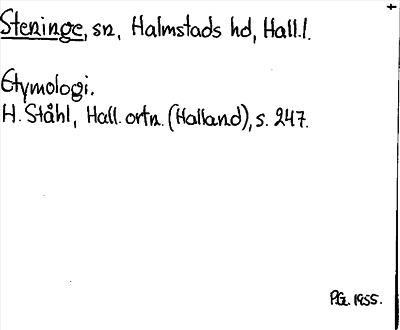 Steninge, sn, Halmstads hd, Hall.l.
Etymologi.
H. Ståhl, Hall. ortn. (Halland), s. 247.
P.G. 1955.